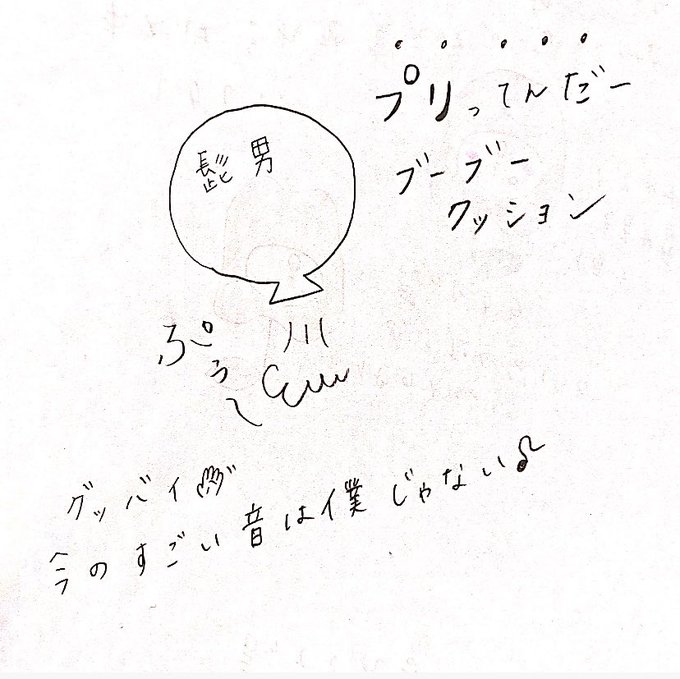 プリってんだー
ブーブー
クッション
髭男
ぷぅ〜
グッバイ
今のすごい音は僕じゃない♪